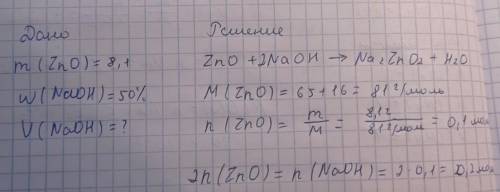 Дано
m (ZnO) = 8,1
w (NaOH) = 50%
V (NaOH) = ?
Решение
ZnO + 2NaOH → Na₂ZnO₂ + H₂O
M (ZnO) = 65 + 16 = 81 г/моль
n (ZnO) = m/M = 8,1 г/81 г/моль = 0,1 моль
2n (ZnO) = n (NaOH) = 2 · 0,1 = 0,2 моль